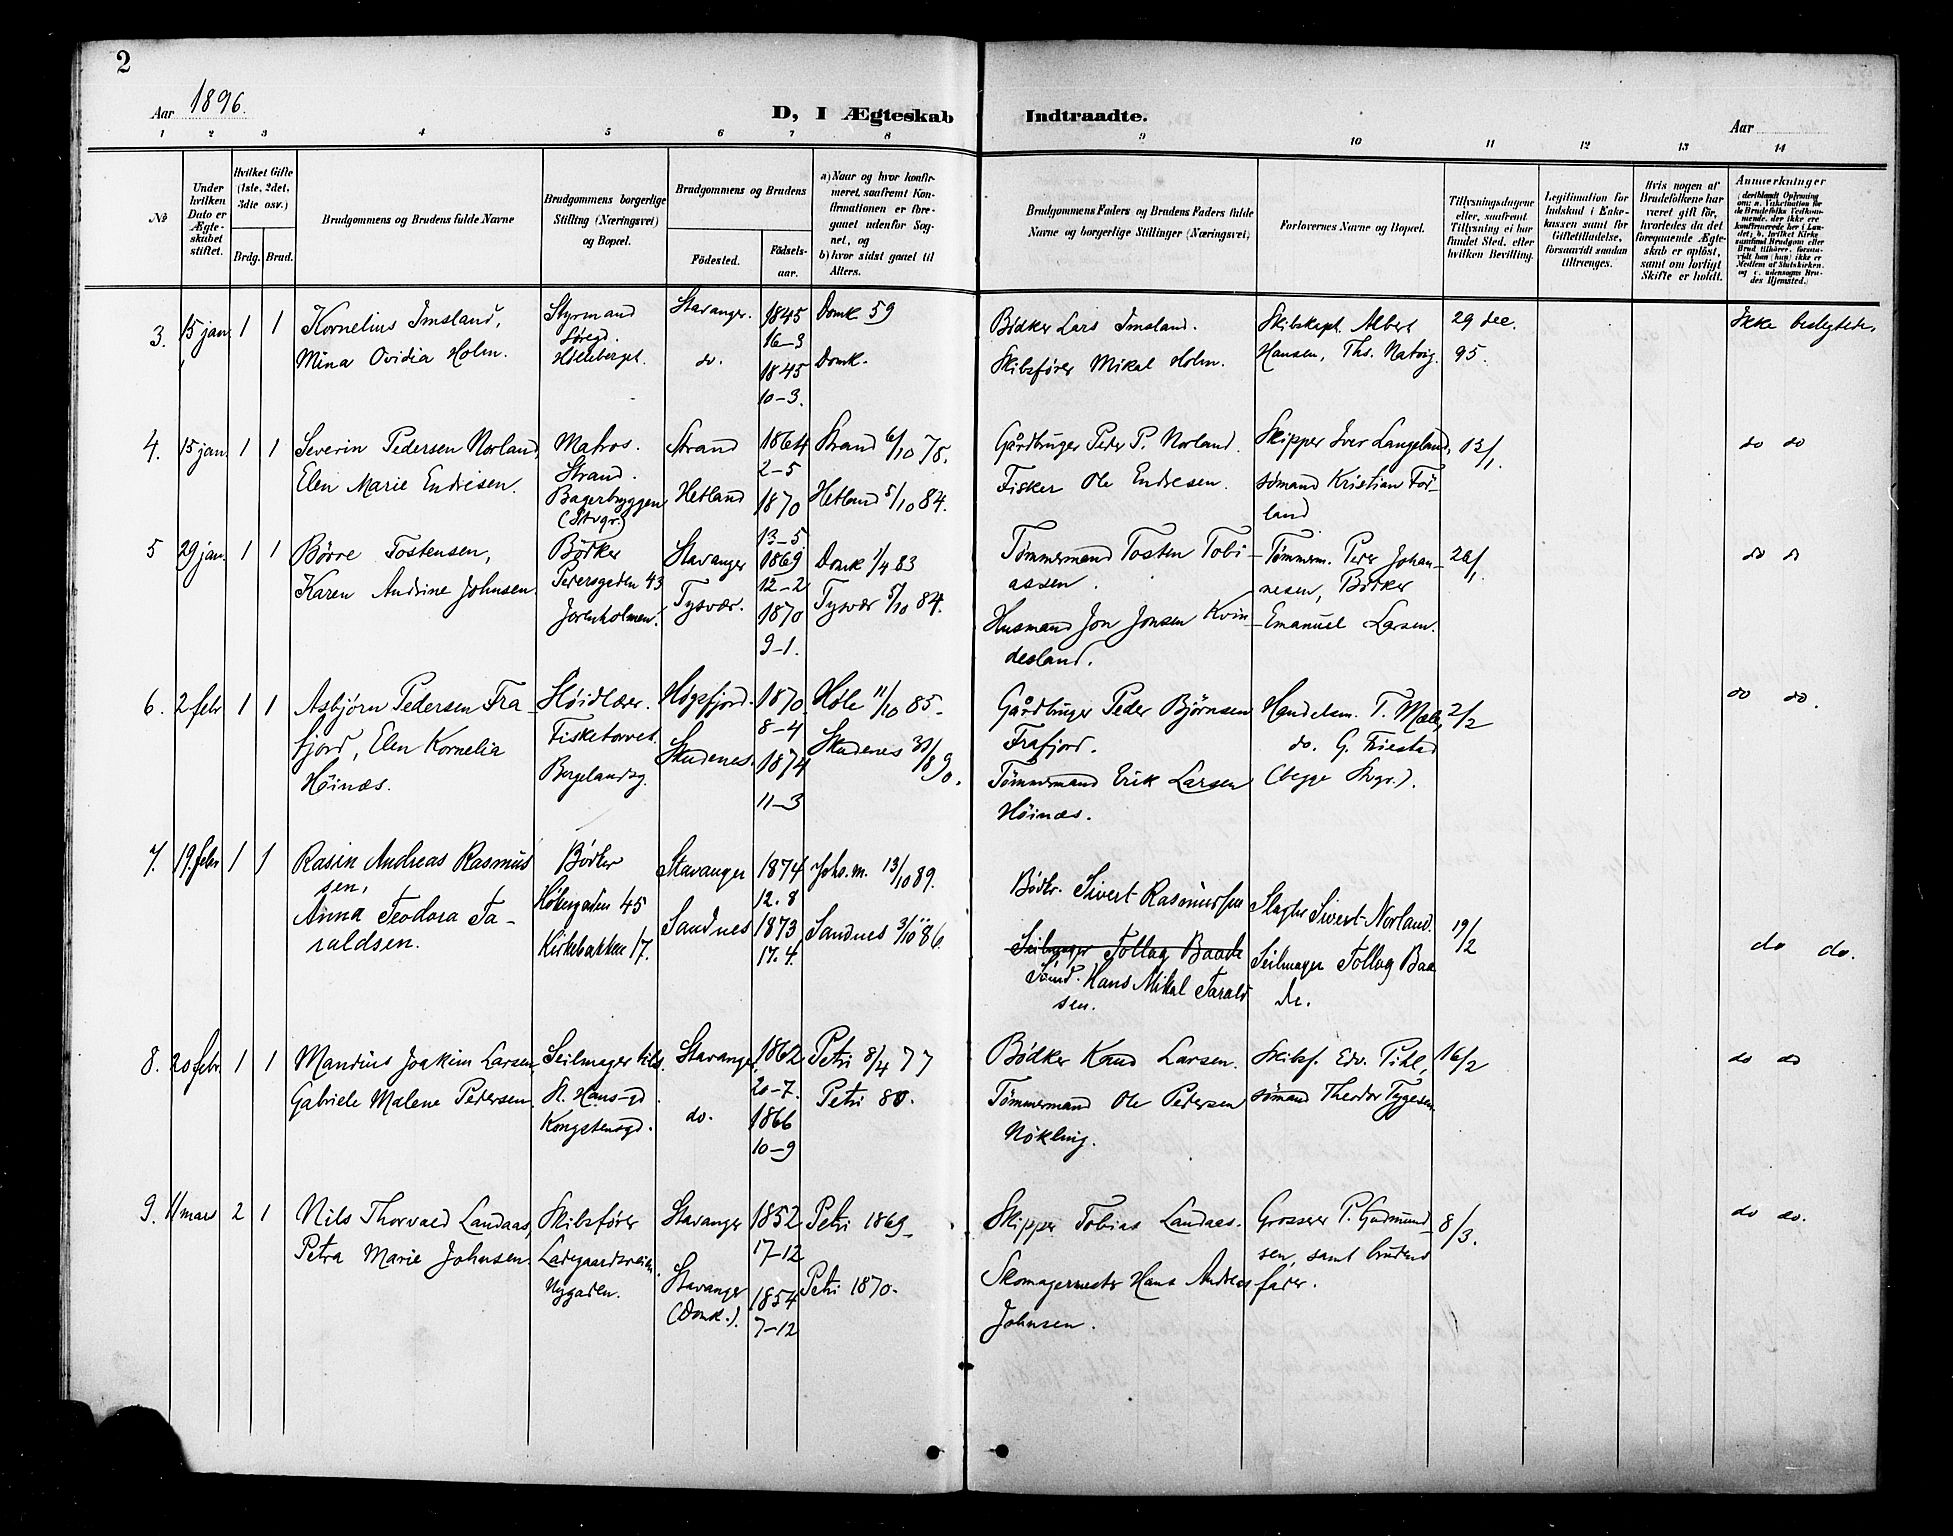 2
Aar 1896.
D, I Ægteskab Indtraadte.
Aar
1 2 3 4 5 6 7 8 9 10 11 12 13 14
No
Under hvilken Dato er Ægteskabet stiftet.
Hvilket Gifte (1ste, 2det, 3die osv.)
Brdg. Brud.
Brudgommens og Brudens fulde Navne
Brudgommens borgerlige Stilling (Næringsvei) og Bopæl.
Brudgommens og Brudens
Fødested.
Fødselsaar.
a) Naar og hvor konfirmeret, saafremt Konfirmationen er foregaaet udenfor Sognet, og
b) hvor sidst gaaet til Alters.
Brudgommens Faders og Brudens Faders fulde Navne og borgerlige Stillinger (Næringsvei)
Forlovernes Navne og Bopæl.
Tillysningsdagene eller, saafremt Tillysning ei har fundet Sted, efter hvilken Bevilling.
Legitimation for Indskud i Enkekassen samt for Giftetilladelse, forsaavidt saadan tiltrænges.
Hvis nogen af Brudefolkene har været gift før, hvorledes da det foregaaende Ægteskab er opløst, samt om lovligt Skifte er holdt.
Anmærkninger
3. 15 jan. 1 1 Kornelius Imsland, Styrmand Stavanger. 1845 Domk 59 Bødker Lars Imsland. Skibskapt. Albert 29 dec. Ikke beslegtede.
16–3
Mina Ovidia Holm. do. 1845 Domk. Skibsfører Mikal Holm. Hansen, Ths. Natvig. 95.
10–3.
4. 15 jan. 1 1 Severin Pedersen Norland, Matros. Strand 1864 Strand 6/10 78. Gårdbruger Peder P. Norland. Skipper Iver Langeland, 13/1. do do
Strand. 2–5
Elen Marie Endresen. Bagerbryggen Hetland 1870 Hetland 5/10 84. Fisker Ole Endresen. sømand Kristian Før-
(Stvgr.) 13–5 land
5 29 jan. 1 1 Børre Tostensen, Bødker Stavanger 1869 Domk 1/4 83 Tømmermand Tosten Tobi- Tømmerm. Peder Johan- 26/1. do do
Pedersgaden 43 12–2 assen. nesen, Bødker
Karen Andrine Johnsen. Jorenholmen. Tysvær. 1870 Tysvær 5/10 84. Husmand Jon Jonsen Kvin- Emanuel Larsen.
9–1. desland.
6. 2 febr 1 1 Asbjørn Pedersen Fra- Høgsfjord. 1870 Høle 11/10 85. Gårdbruger Peder Bjørnsen Handelsm. T. Mæle, 2/2 do do.
fjord, Elen Kornelia Fisketorvet. 8–4 Frafjord. do. G. Friestad
Høinæs. Bergelandsg. Skudenes. 1874 Skudenes Tømmermand Erik Larsen (begge Stvgr.).
11–3 Høinæs.
7. 19 febr 1 1 Rasin Andreas Rasmus Bødker Stavanger 1874 Joh.m. 13/10 89. Bødkr. Sivert Rasmussen Slagter Sivert Norland. 19/2
sen, 45 12.8
Anna Teodora Ta- Kirkebakken 17. Sandnes 1873 Sandnes 3/10 86. Seilmager Tollag Baade Seilmager Tollag Baa do do.
raldsen. 17.4. Sømd. Hans Mikal Tarald de.
sen.
8. 20 febr. 1 1 Mandius Joakim Larsen, Seilmager Stavanger 1862 Petri 8/4 77 Bødker Knud Larsen. Skibsf. Edv. Pihl, 16/2 do do
St. Hans-gd. 20–7.
Gabriele Malene Pedersen. Kongstensgd. do. 1866 Petri 80. Tømmermand Ole Pedersen sømand Theodor Tygesen.
10–9 Nökling.
9. 11 mars 2 1 Nils Thorvald Landaas, Skibsfører Stavanger 1852 Petri 1869 Skipper Tobias Landaas. Grosserer P. Gudmund- 8/3. do do.
Ladegaardsveien. 17–12 sen, samt brudens
Petra Marie Johnsen. Nygaden. Stavanger 1854 Petri 1870. Skomagermester Hans Andreas fader.
(Domk.). 7–12 Johnsen.